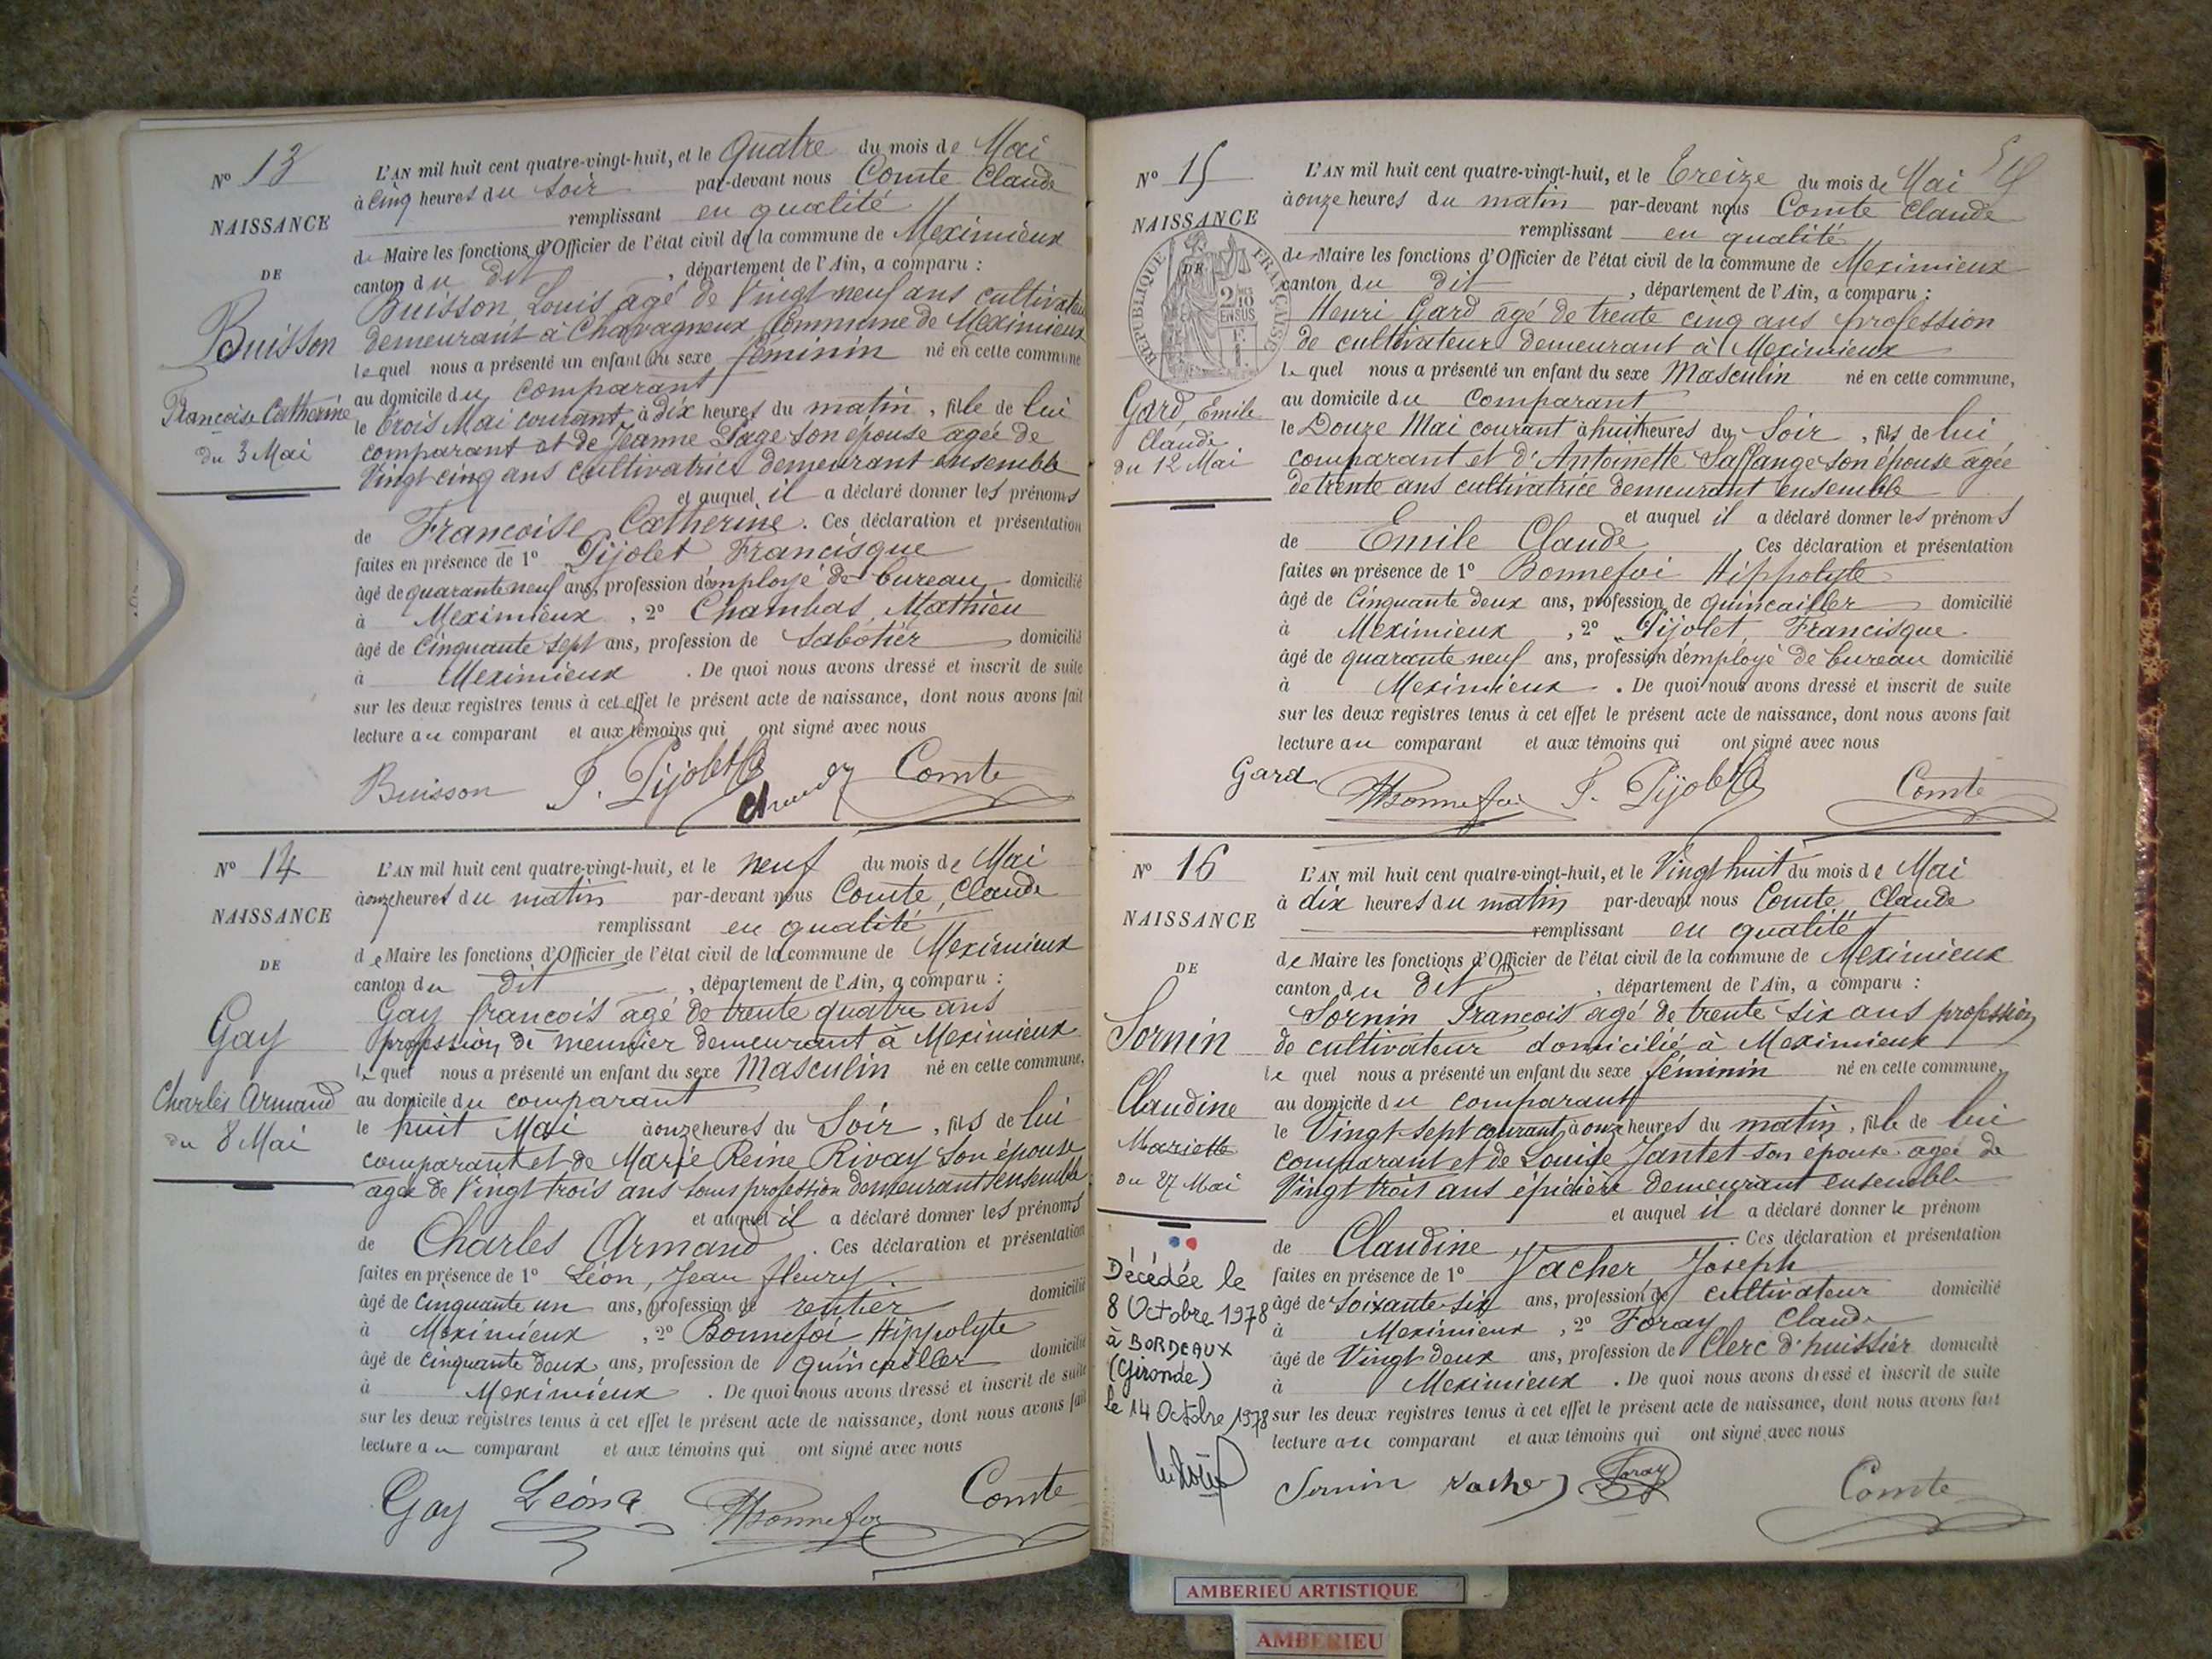 N° 13
NAISSANCE
DE
Buisson
Francoise Catherine
du 3 Mai
L'AN mil huit cent quatre-vingt-huit, et le Quatre du mois de Mai
à Cinq heures du Soir par-devant nous Comte Claude
remplissant en qualité
de Maire les fonctions d'Officier de l'état civil de la commune de Meximieux
canton du dit , département de l'Ain, a comparu :
Buisson Louis âgé de Vingt neuf ans cultivateur
demeurant à Chavagneux Commune de Meximieux
lequel nous a présenté un enfant du sexe féminin né en cette commune
au domicile du comparant
le trois Mai courant à dix heures du matin, fille de lui
comparant et de Jeanne Page son épouse agée de
Vingt cinq ans cultivatrice demeurant ensemble
et auquel il a déclaré donner les prénoms
de Francoise Catherine. Ces déclaration et présentation
faites en présence de 1° Pijolet Francisque
âgé de quarante neuf ans, profession d'employé de bureau domicilié
à Meximieux , 2° Chambas Mathieu
âgé de Cinquante Sept ans, profession de Sabotier domicilié
à Meximieux . De quoi nous avons dressé et inscrit de suite
sur les deux registres tenus à cet effet le présent acte de naissance, dont nous avons fait
lecture au comparant et aux témoins qui ont signé avec nous
Buisson F. Pijolet Comte
N° 14
NAISSANCE
DE
Gay
Charles Armand
du 8 Mai
L'AN mil huit cent quatre-vingt-huit, et le neuf du mois de Mai
à onze heures du matin par-devant nous Comte, Claude
remplissant en qualité
de Maire les fonctions d'Officier de l'état civil de la commune de Meximieux
canton du dit , département de l'Ain, a comparu :
Gay francois âgé de trente quatre ans
profession de meunier demeurant à Meximieux
lequel nous a présenté un enfant du sexe Masculin né en cette commune,
au domicile du comparant
le huit Mai à onze heures du Soir, fils de lui
comparant et de Marie Reine Rivay son épouse
agée de Vingt trois ans sans profession demeurant ensemble
et auquel il a déclaré donner les prénoms
de Charles Armand . Ces déclaration et présentation
faites en présence de 1° Léon, Jean fleury
âgé de Cinquante un ans, profession de rentier domicilié
à Meximieux , 2° Bonnefoi, Hippolyte
âgé de Cinquante deux ans, profession de quincailler domicilié
à Meximieux . De quoi nous avons dressé et inscrit de suite
sur les deux registres tenus à cet effet le présent acte de naissance, dont nous avons fait
lecture au comparant et aux témoins qui ont signé avec nous
Gay Léon HBonnefoi Comte
N° 15
NAISSANCE
DE
RÉPUBLIQUE FRANÇAISE
Gard, Emile
Claude
du 12 Mai
L'AN mil huit cent quatre-vingt-huit, et le Treize du mois de Mai
à onze heures du matin par-devant nous Comte Claude
remplissant en qualité
de Maire les fonctions d'Officier de l'état civil de la commune de Meximieux
canton du dit , département de l'Ain, a comparu :
Henri Gard âgé de trente cinq ans profession
de cultivateur demeurant à Meximieux
lequel nous a présenté un enfant du sexe Masculin né en cette commune,
au domicile du Comparant
le Douze Mai courant à huit heures du Soir, fils de lui
comparant et d'Antoinette Saffange son épouse agée
de trente ans cultivatrice demeurant ensemble
et auquel il a déclaré donner les prénoms
de Emile Claude Ces déclaration et présentation
faites en présence de 1° Bonnefoi Hippolyte
âgé de Cinquante deux ans, profession de quincailler domicilié
à Meximieux , 2° Pijolet, Francisque
âgé de quarante neuf ans, profession d'employé de bureau domicilié
à Meximieux . De quoi nous avons dressé et inscrit de suite
sur les deux registres tenus à cet effet le présent acte de naissance, dont nous avons fait
lecture au comparant et aux témoins qui ont signé avec nous
Gard HBonnefoi F. Pijolet Comte
N° 16
NAISSANCE
DE
Sornin
Claudine
Mariette
du 27 Mai
Décédée le
8 Octobre 1978
à BORDEAUX
(Gironde)
Le 14 Octobre 1978
L'AN mil huit cent quatre-vingt-huit, et le Vingt huit du mois de Mai
à dix heures du matin par-devant nous Comte Claude
remplissant en qualité
de Maire les fonctions d'Officier de l'état civil de la commune de Meximieux
canton du dit , département de l'Ain, a comparu :
Sornin Francois âgé de trente six ans profession
de cultivateur domicilié à Meximieux
lequel nous a présenté un enfant du sexe féminin né en cette commune,
au domicile du comparant
le Vingt sept courant, à onze heures du matin, fille de lui
comparant et de Louise Jantet son épouse agée de
Vingt trois ans épicière demeurant ensemble
et auquel il a déclaré donner le prénom
de Claudine Ces déclaration et présentation
faites en présence de 1° Vacher Joseph
âgé de Soixante six ans, profession de cultivateur domicilié
à Meximieux , 2° Foray Claude
âgé de Vingt deux ans, profession de Clerc d'huissier domicilié
à Meximieux . De quoi nous avons dressé et inscrit de suite
sur les deux registres tenus à cet effet le présent acte de naissance, dont nous avons fait
lecture au comparant et aux témoins qui ont signé avec nous
Sornin Vacher Foray Comte
AMBERIEU ARTISTIQUE
AMBERIEU